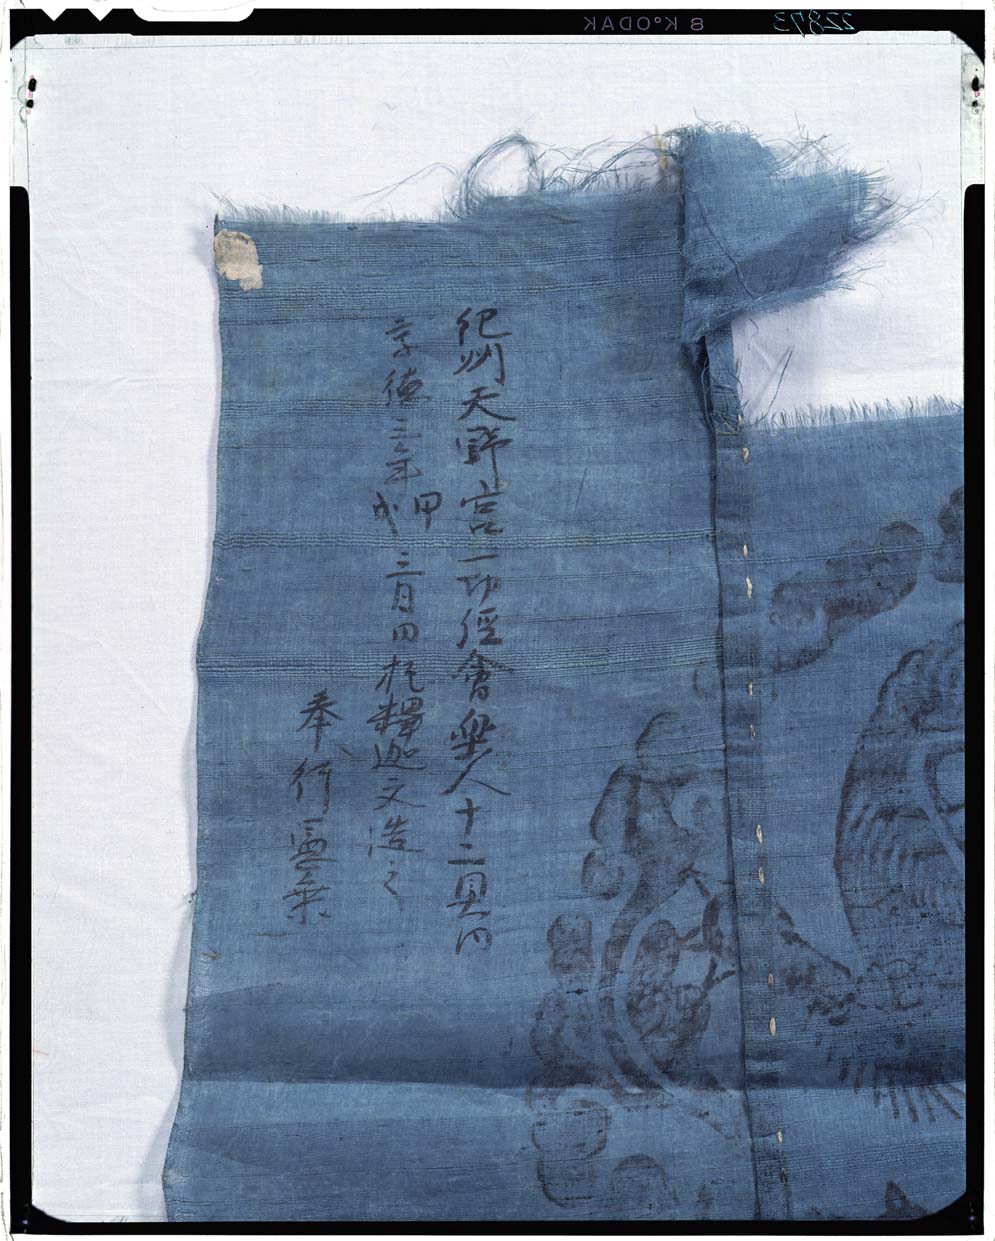 22873
8 KODAK
紀州天野宮一切經會樂人十二具内
享徳三年甲戌三月日於釋迦文造之
奉行